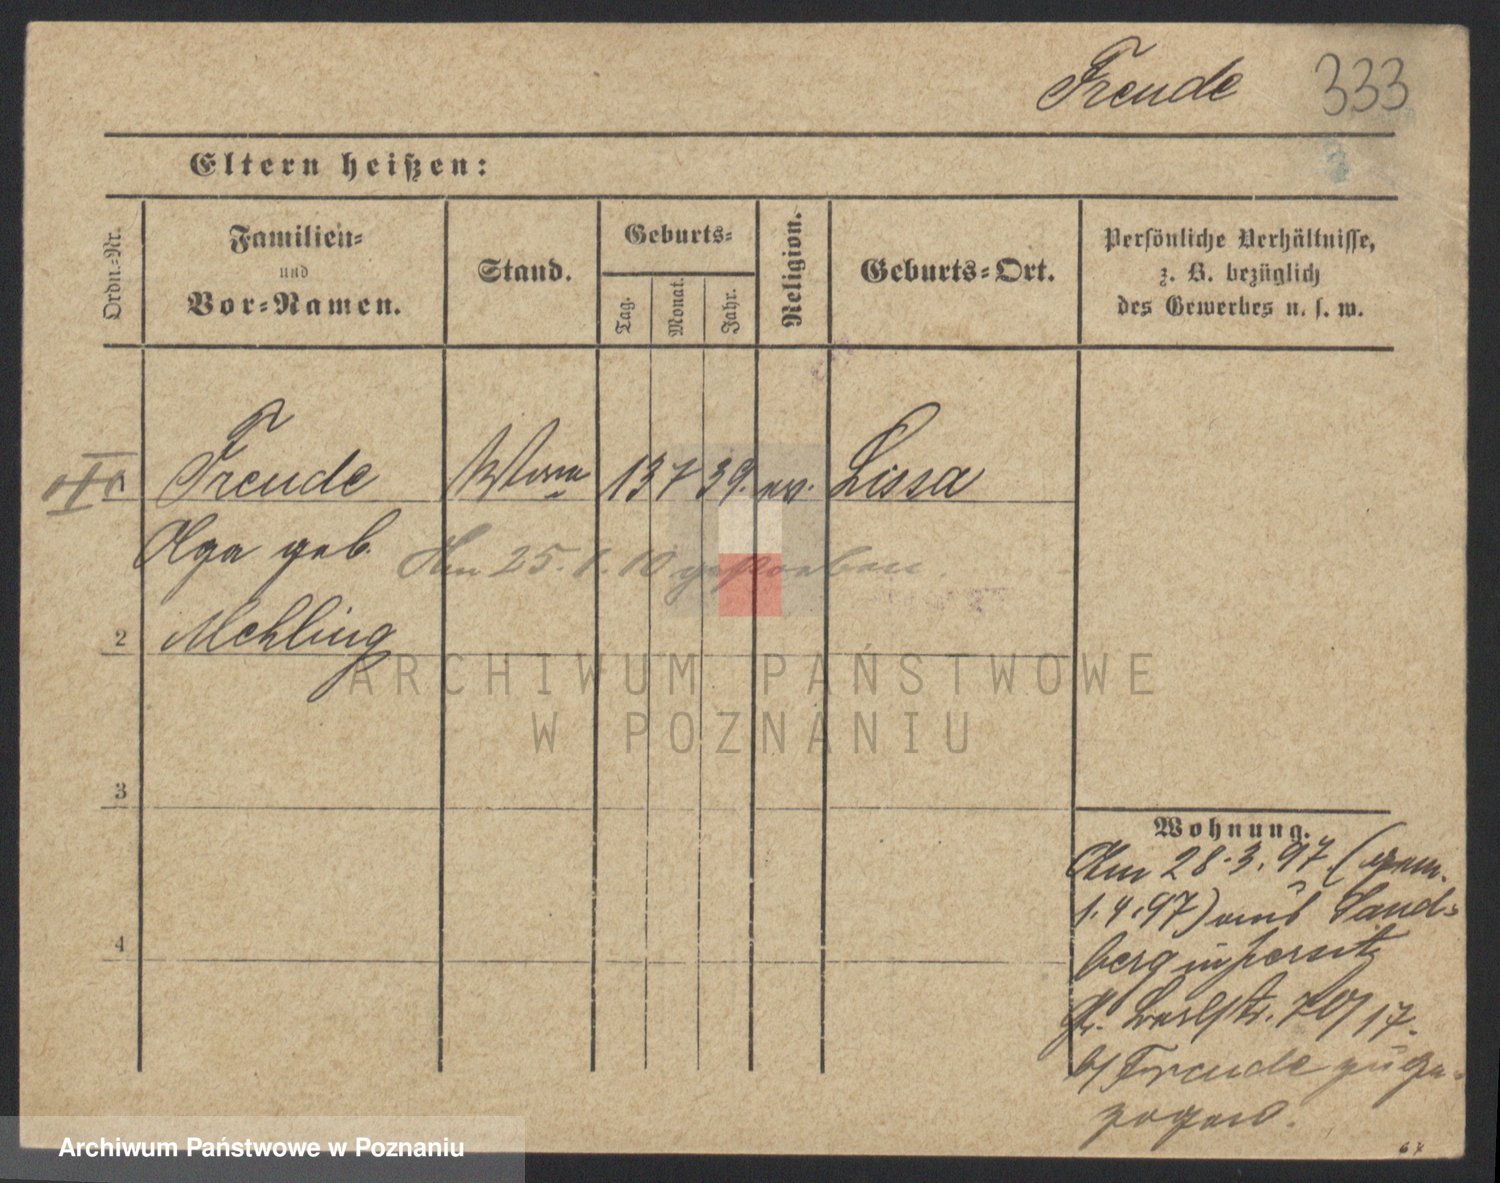 Freude 333
Eltern heißen:
Ordn.-Nr.
Familien-
und
Vor-Namen.
Stand.
Geburts-
Tag.
Monat.
Jahr.
Religion.
Geburts-Ort.
Persönliche Verhältnisse,
z. B. bezüglich
des Gewerbes u. s. w.
Freude 13 7 39. ev. Lissa
Olga geb.
Am 25. 1. 10 gestorben.
2 Mehling
ARCHIWUM PAŃSTWOWE
W POZNANIU
3
Wohnung.
Am 28.3.97 (gem.
1.4.97) aus Lands-
berg
4
b/ Freude zuge-
zogen.
Archiwum Państwowe w Poznaniu